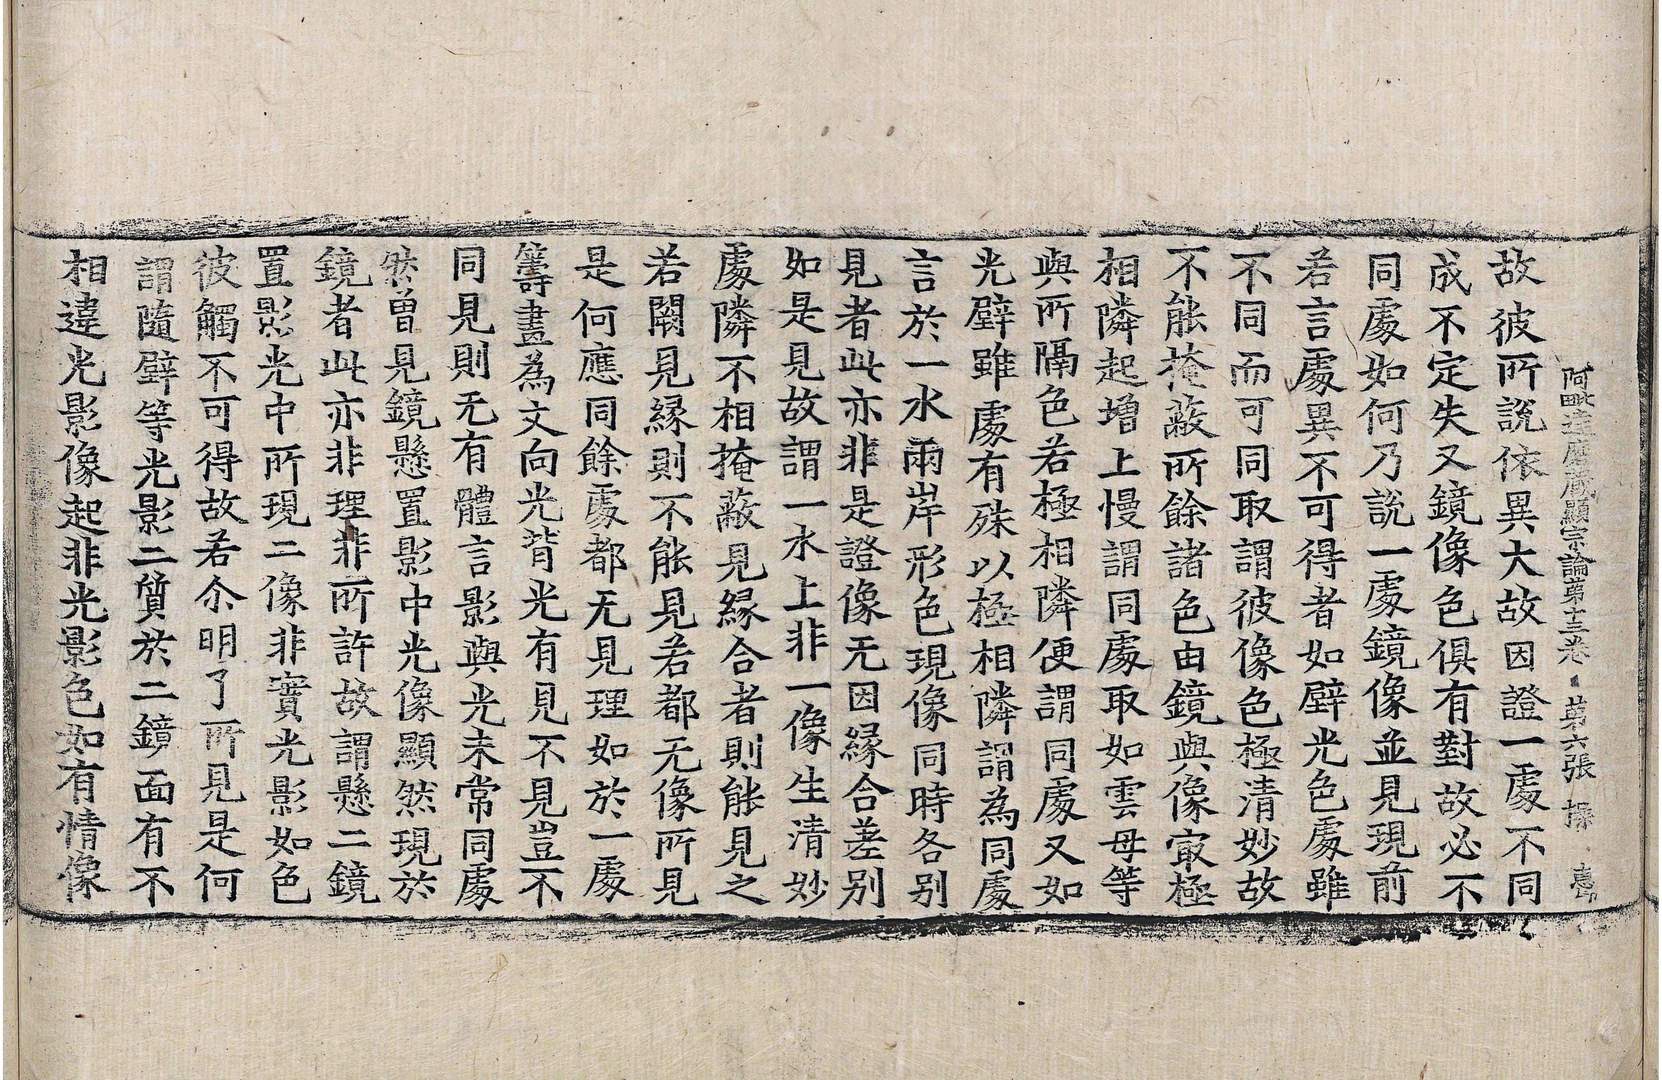 阿毗達磨藏顯宗論第十三卷 第六張 操
故彼所說依異大故因證一處不同
成不定失又鏡像色俱有對故必不
同處如何乃說一處鏡像並見現前
若言處異不可得者如壁光色處雖
不同而可同取謂彼像色極清妙故
不能掩蔽所餘諸色由鏡與像㝡極
相隣起增上慢謂同處取如雲母等
與所隔色若極相隣便謂同處又如
光壁雖處有殊以極相隣謂為同處
言於一水兩岸形色現像同時各别
見者此亦非是證像无因緣合差别
如是見故謂一水上非一像生清妙
處隣不相掩蔽見緣合者則能見之
若闕見緣則不能見若都无像所見
是何應同餘處都无見理如於一處
籌畫為文向光背光有見不見豈不
同見則无有體言影與光未常同處
然曽見鏡懸置影中光像顯然現於
鏡者此亦非理非所許故謂懸二鏡
置影光中所現二像非實光影如色
彼觸不可得故若尒明了所見是何
謂隨壁等光影二質於二鏡面有不
相違光影像起非光影色如有情像